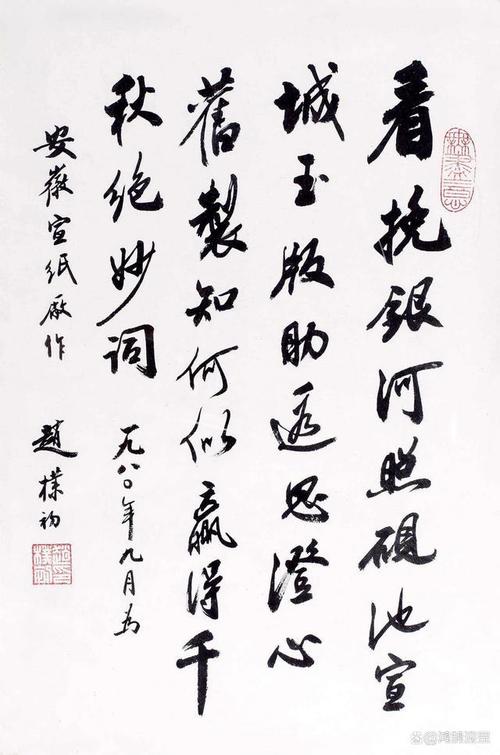 看挽銀河照硯池宣
城玉版助遐思澄心
舊製知何似贏得千
秋絶妙詞 一九八〇年九月为
安徽宣紙廠作 趙樸初